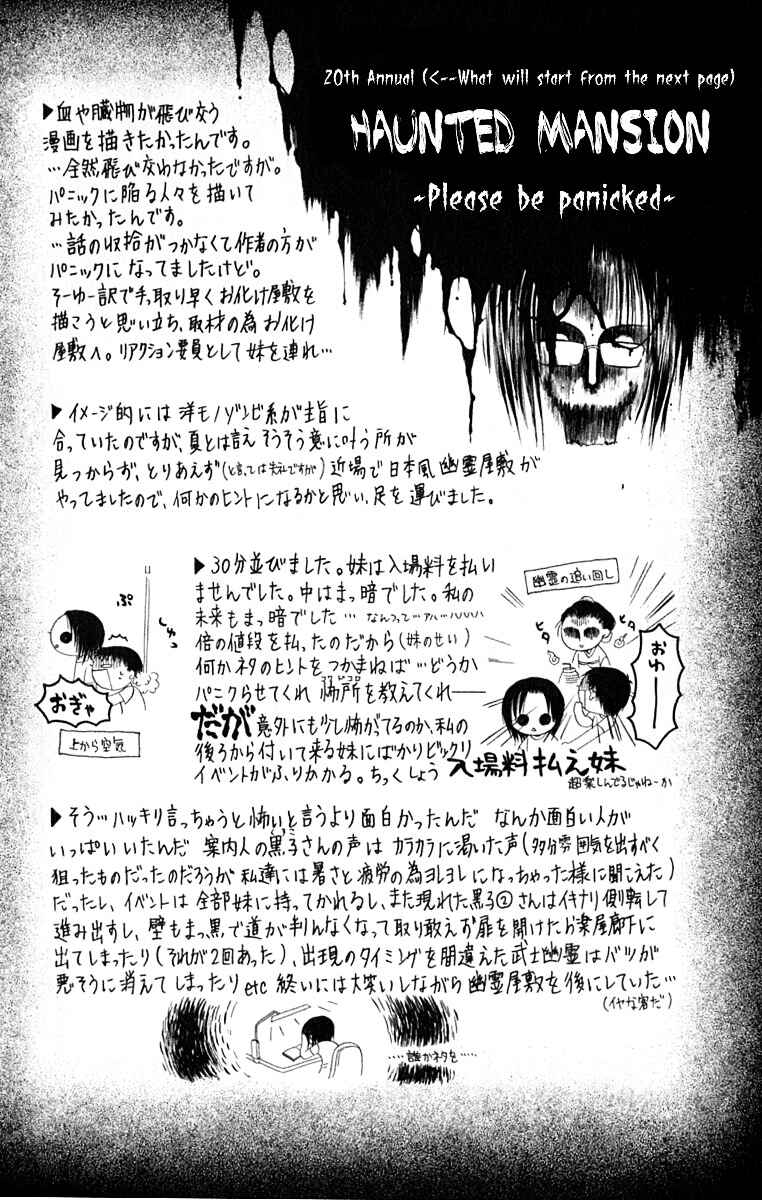 20th Annual (<--What will start from the next page)
HAUNTED MANSION
~Please be panicked~
▶血や臓物が飛び交う
漫画を描きたかったんです。
…全然飛び交わなかったですが。
パニックに陥る人々を描いて
みたかったんです。
…話の収拾がつかなくて作者の方が
パニックに なってましたけど。
そーゆー訳で手っ取り早く お化け屋敷を
描こうと思い立ち、取材の為 お化け
屋敷へ。リアクション要員として妹を連れ…
▶イメージ的には 洋モノゾンビ系が主旨に
合っていたのですが、夏とは言え そうそう意に叶う所が
見つからず、とりあえず(と言っては失礼ですが) 近場で 日本風 幽霊屋敷が
やってましたので、何かのヒントになるかと思い、足を運びました。
▶30分並びました。妹は入場料を払い
ませんでした。中はまっ暗でした。私の
未来もまっ暗でした…
倍の値段を払ったのだから(妹のせい)
何かネタのヒントをつかまねば…どうか
パニクらせてくれ 怖所を教えてくれ――
だが 意外にも少し怖がってるのか、私の
後ろから付いて来る妹にばかりビックリ
イベントがふりかかる。ちっくしょう 入場料払え妹
超楽しんでるじゃねーか
ぷ
しゅっ
おぎゃ
上から空気
幽霊の追い回し
ヒタ
ヒタ
おわーー
▶そう…ハッキリ言っちゃうと怖いと言うより面白かったんだ なんか面白い人が
いっぱいいたんだ 案内人の黒子さんの声は カラカラに渇いた声(多分雰囲気を出すべく
狙ったものだったのだろうが 私達には暑さと疲労の為ヨレヨレになっちゃった様に聞こえた)
だったし、イベントは全部妹に持ってかれるし、また現れた黒子②さんはイキナリ側転して
進み出すし、壁もまっ黒で道が判んなくなって取り敢えず扉を開けたら楽屋廊下に
出てしまったり(それが2回あった)、出現のタイミングを間違えた武士幽霊はバツが
悪そうに消えてしまったり etc 終いには大笑いしながら 幽霊屋敷を後にしていた…
(イヤな客だ)
……誰かネタを……